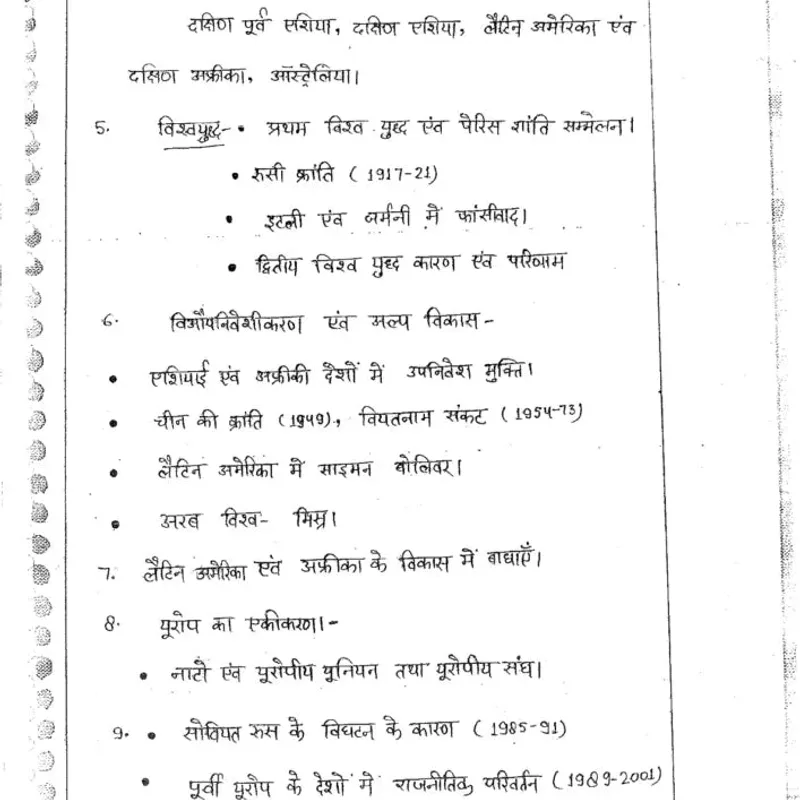 दक्षिण पूर्व एशिया, दक्षिण एशिया, लैटिन अमेरिका एंव
दक्षिण अफ्रीका, ऑस्ट्रेलिया।
5. विश्वयुद्ध- • प्रथम विश्व युध्द एंव पेरिस शांति सम्मेलन।
• रुसी क्रांति ( 1917-21)
• इटली एंव जर्मनी में फांसीवाद।
• द्वितीय विश्व युध्द कारण एंव परिणाम
6. विऔपनिवेशीकरण एंव अल्प विकास -
• एशियाई एंव अफ्रीकी देशों में उपनिवेश मुक्ति।
• चीन की क्रांति (1949), वियतनाम संकट ( 1954-73)
• लैटिन अमेरिका में साइमन बोलिवर।
• अरब विश्व- मिस्र।
7. लैटिन अमेरिका एंव अफ्रीका के विकास में बाधाएँ।
8. यूरोप का एकीकरण।-
• नाटो एंव यूरोपीय यूनियन तथा यूरोपीय संघ।
9. • सोवियत रुस के विघटन के कारण ( 1985-91)
• पूर्वी यूरोप के देशों में राजनीतिक परिवर्तन ( 1989-2001)